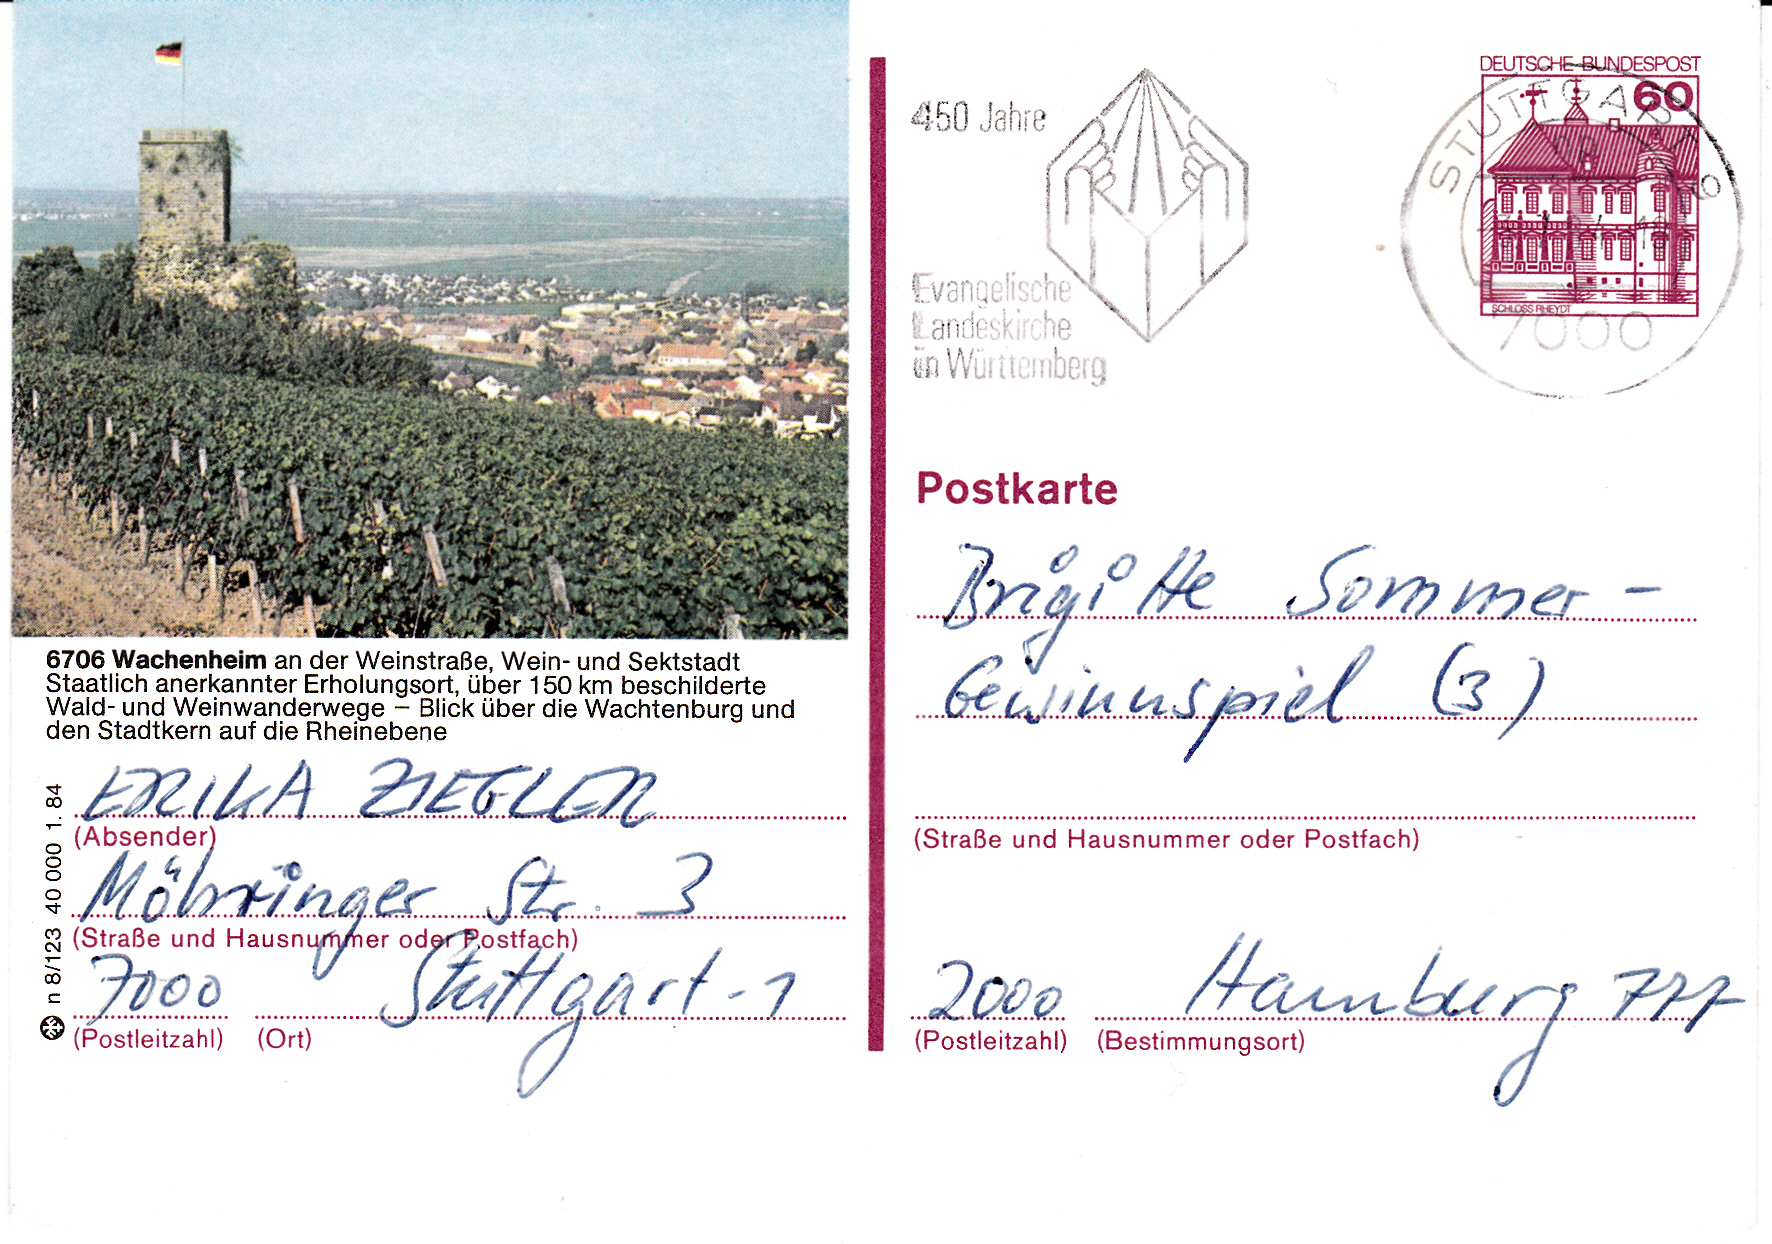 6706 Wachenheim an der Weinstraße, Wein- und Sektstadt
Staatlich anerkannter Erholungsort, über 150 km beschilderte
Wald- und Weinwanderwege – Blick über die Wachtenburg und
den Stadtkern auf die Rheinebene
ERIKA ZIEGLER
(Absender)
Möhringer Str. 3
(Straße und Hausnummer oder Postfach)
7000 Stuttgart-1
(Postleitzahl) (Ort)
n 8/123 40 000 1. 84
450 Jahre
Evangelische
Landeskirche
in Württemberg
DEUTSCHE BUNDESPOST
60
SCHLOSS RHEYDT
STUTTGART 9
7000
Postkarte
Brigitte Sommer-
Gewinnspiel (3)
(Straße und Hausnummer oder Postfach)
2000 Hamburg 777
(Postleitzahl) (Bestimmungsort)